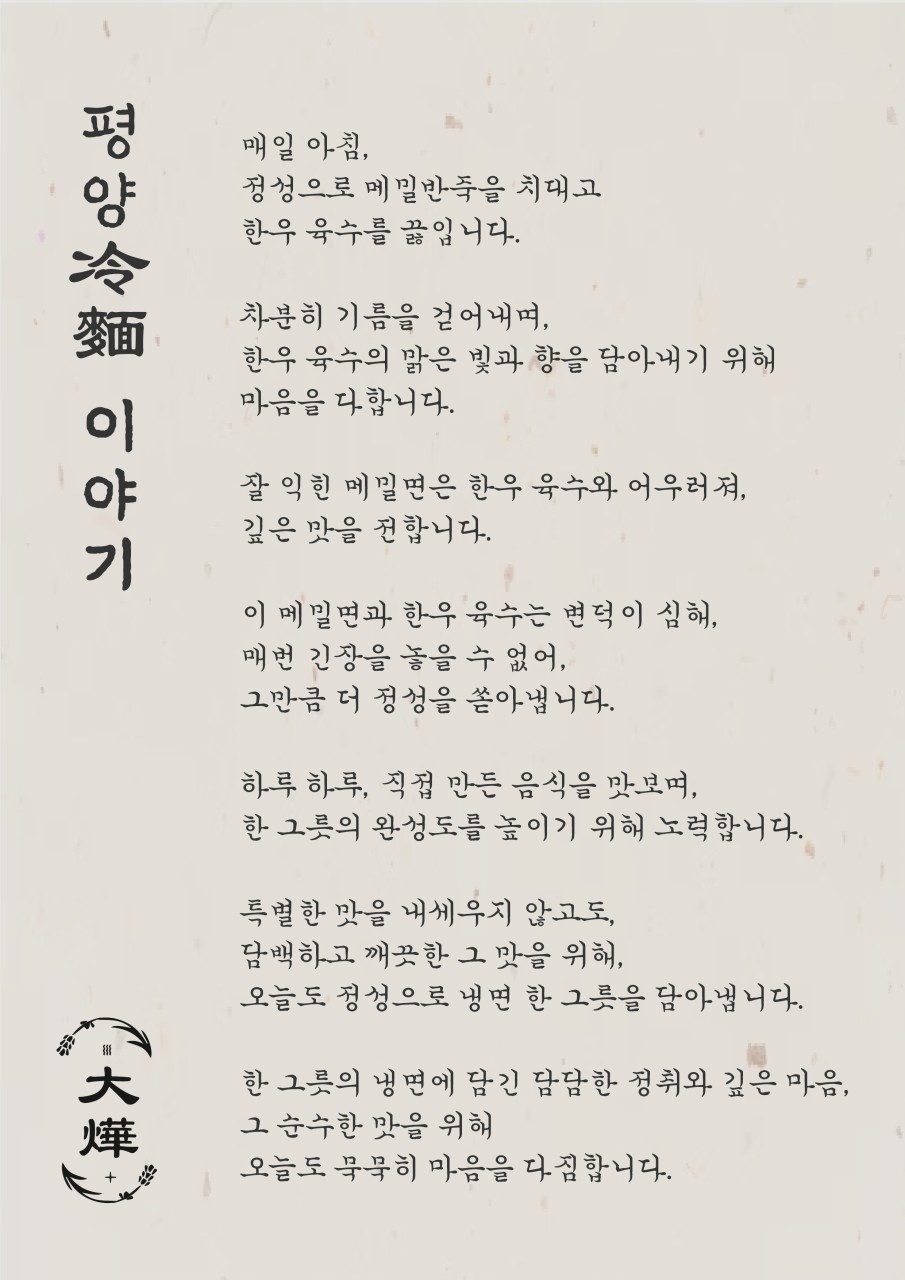 평양冷麵 이야기
매일 아침,
정성으로 메밀반죽을 치대고
한우 육수를 끓입니다.
차분히 기름을 걷어내며,
한우 육수의 맑은 빛과 향을 담아내기 위해
마음을 다합니다.
잘 익힌 메밀면은 한우 육수와 어우러져,
깊은 맛을 전합니다.
이 메밀면과 한우 육수는 변덕이 심해,
매번 긴장을 놓을 수 없어,
그만큼 더 정성을 쏟아냅니다.
하루 하루, 직접 만든 음식을 맛보며,
한 그릇의 완성도를 높이기 위해 노력합니다.
특별한 맛을 내세우지 않고도,
담백하고 깨끗한 그 맛을 위해,
오늘도 정성으로 냉면 한 그릇을 담아냅니다.
한 그릇의 냉면에 담긴 담담한 정취와 깊은 마음,
그 순수한 맛을 위해
오늘도 묵묵히 마음을 다짐합니다.
大燁